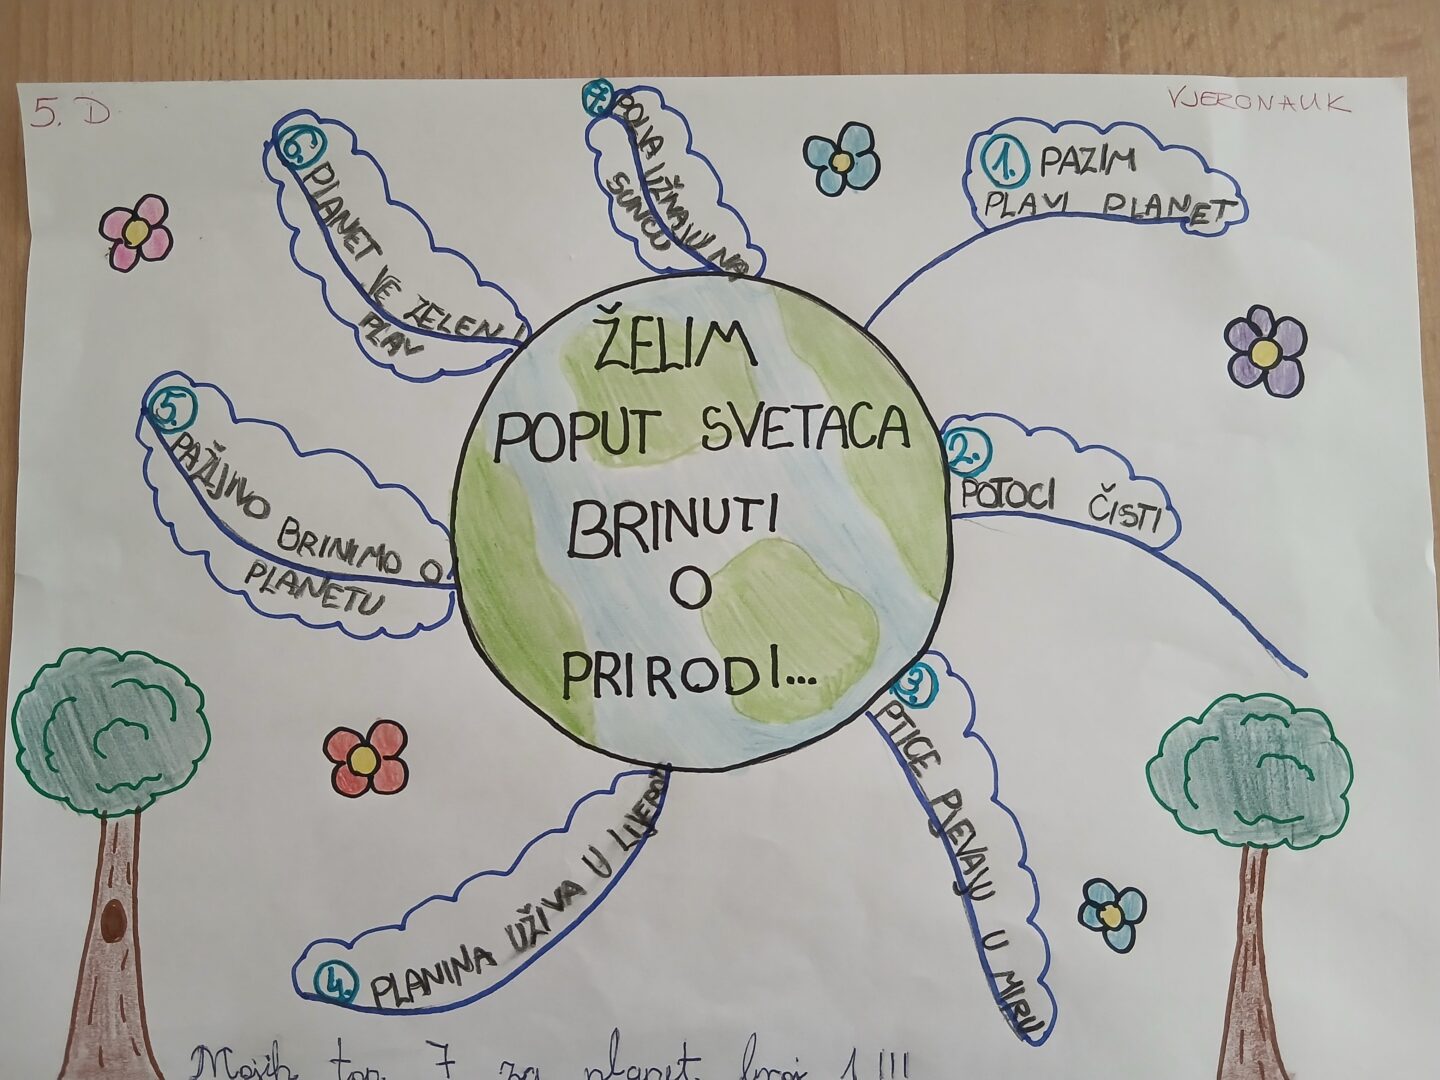 5. D
VJERONAUK
ŽELIM
POPUT SVETACA
BRINUTI
O
PRIRODI...
1. PAZIM
PLAVI PLANET
2. POTOCI ČISTI
3. PTICE PJEVAJU U MIRU
4. PLANINA UŽIVA U
5. PAŽLJIVO BRINIMO O
PLANETU
6. PLANET VE ZELEN I
PLAV
7. POLJA UŽIVAJU NA
SUNCU
Mojih top 7 za planet broj 1!!!